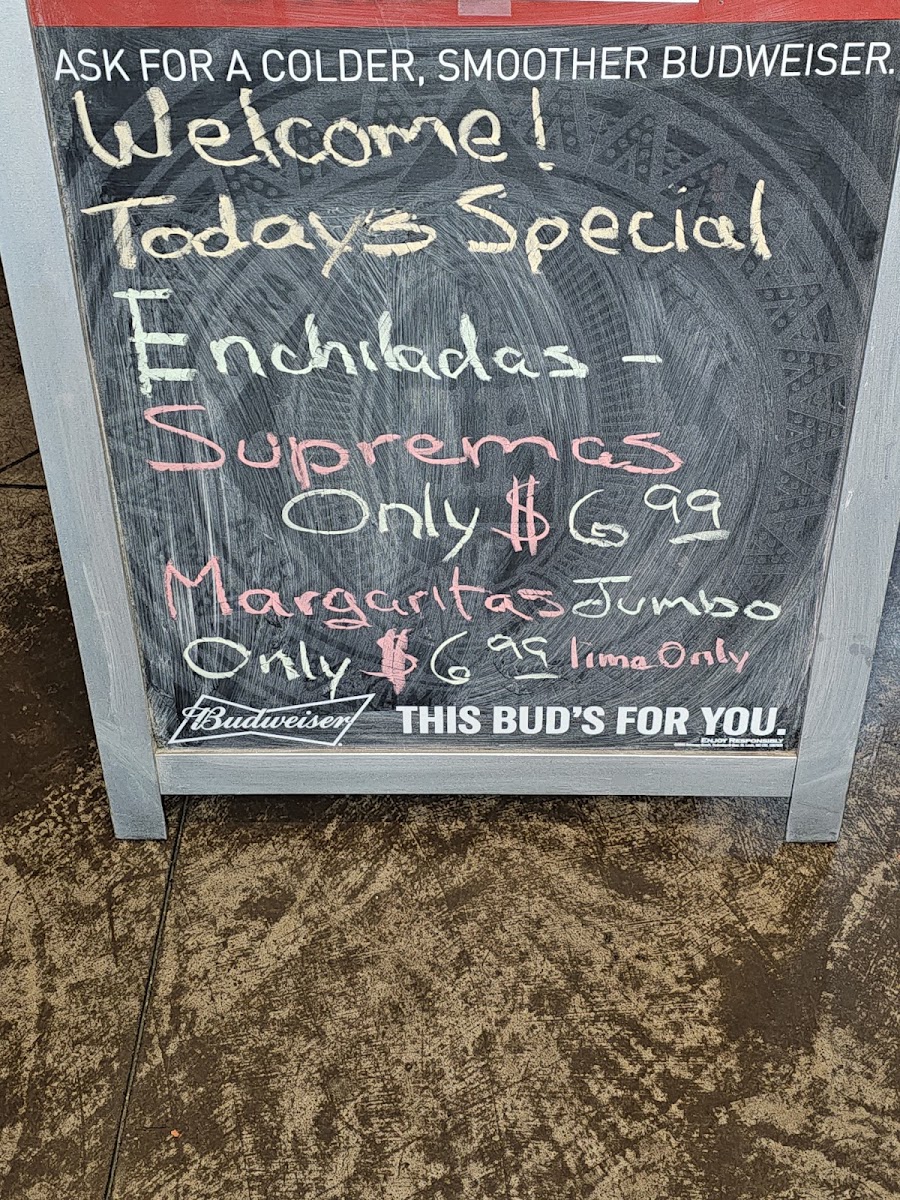 ASK FOR A COLDER, SMOOTHER BUDWEISER.
Welcome!
Todays Special
Enchiladas -
Supremas
Only $6 99
Margaritas Jumbo
Only $6 99 lime Only
Budweiser THIS BUD'S FOR YOU.
ENJOY RESPONSIBLY